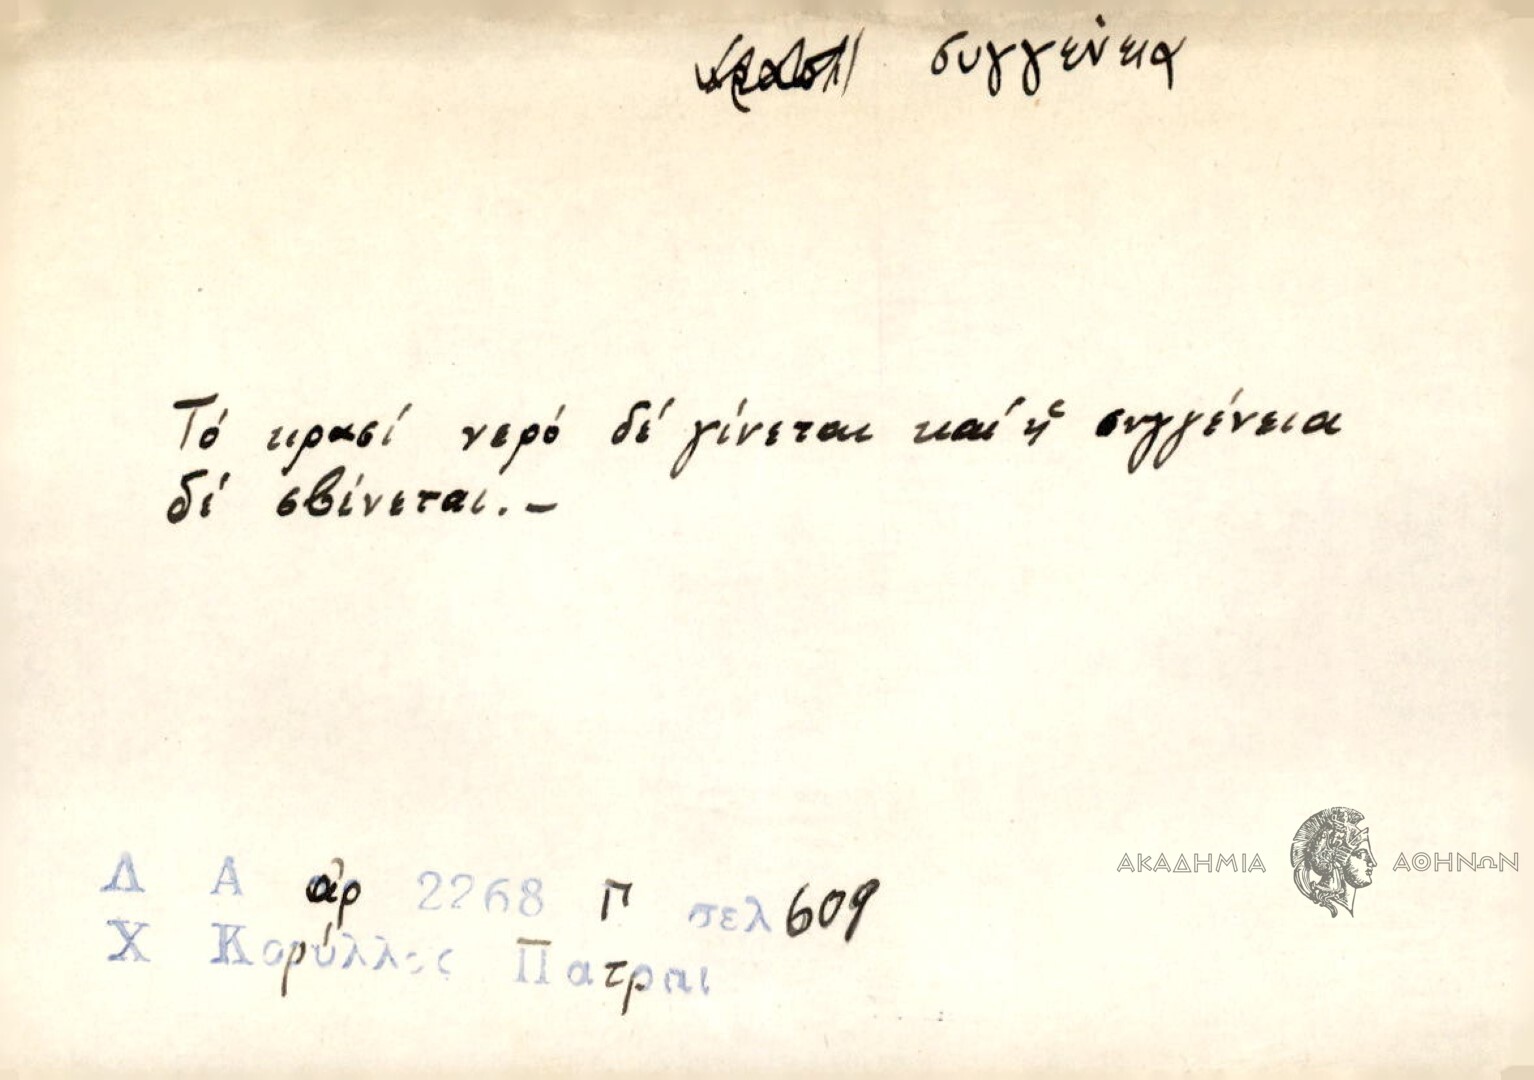 συγγένεια
Τό κρασί νερό δέ γίνεται καί ἡ συγγένεια
δέ σβίνεται. —
ΑΚΑΔΗΜΙΑ ΑΘΗΝΩΝ
Δ Α αρ 2268 Γ σελ 609
Χ Κορύλλος Πατραι